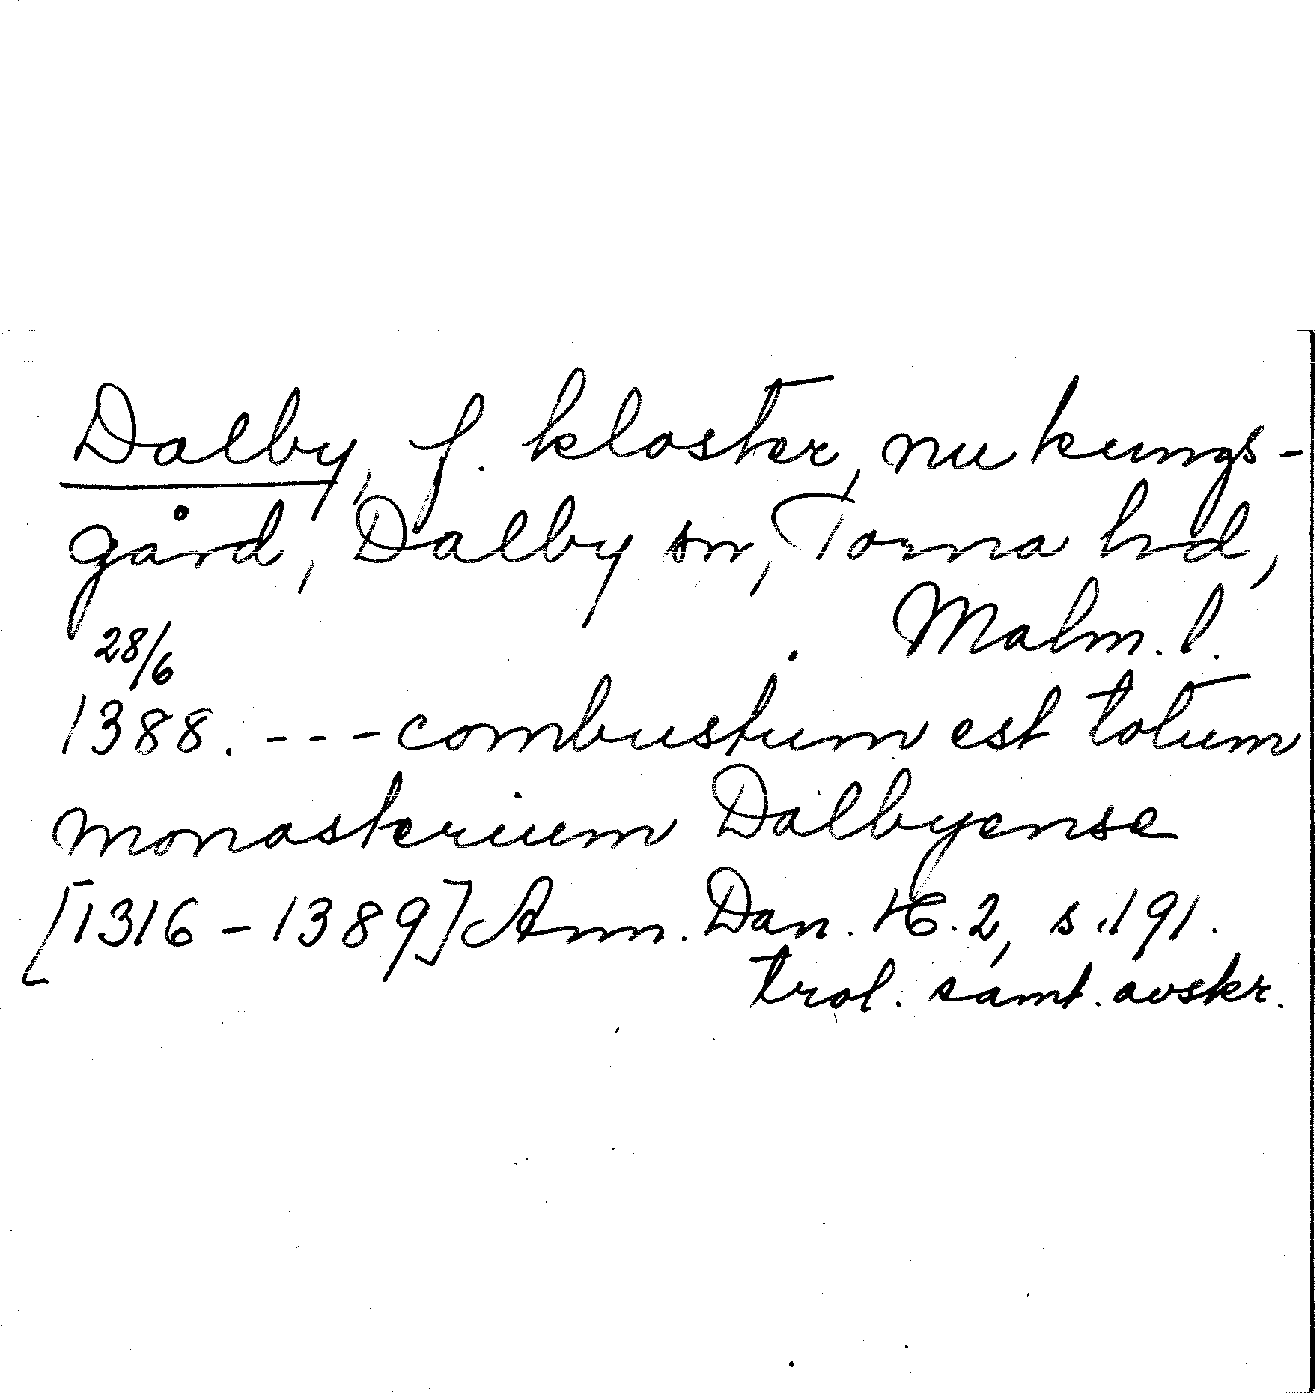 Dalby, f. kloster, nu kungs-
gård, Dalby sn, Torna hd,
Malm. l.
28/6
1388. --- combustum est totum
monasterium Dalbyense
[1316-1389] Ann. Dan. 2, s. 191.
trol. samt. avskr.